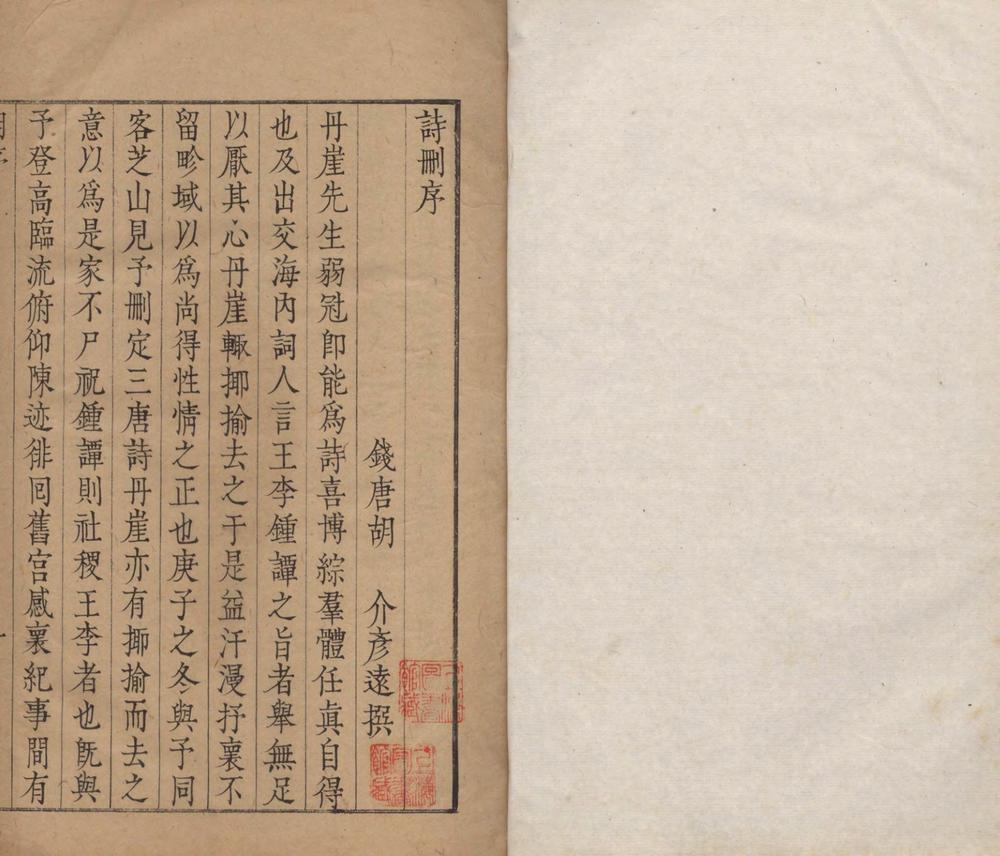 詩刪序
錢唐胡 介彥遠撰
丹崖先生弱冠即能爲詩喜博綜羣體任眞自得
也及出交海內詞人言王李鍾譚之旨者舉無足
以厭其心丹崖輙揶揄去之于是益汗漫抒襄不
留畛域以爲尚得性情之正也庚子之冬與予同
客芝山見予刪定三唐詩丹崖亦有揶揄而去之
意以爲是家不尸祝鍾譚則社稷王李者也旣與
予登高臨流俯仰陳迹徘囘舊宫感襄紀事間有